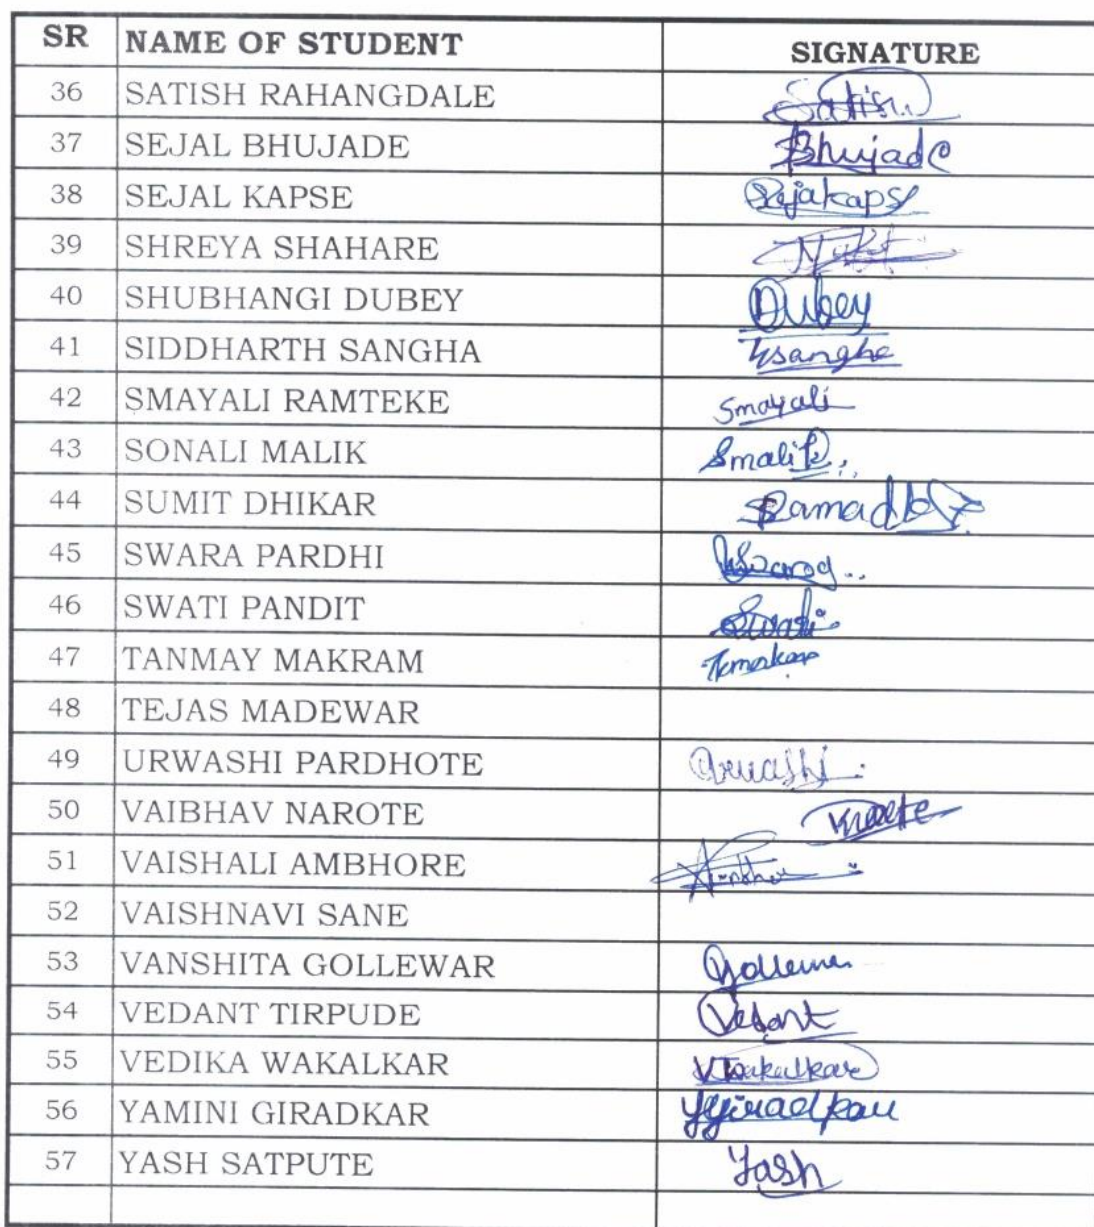 SR NAME OF STUDENT SIGNATURE
36 SATISH RAHANGDALE Satish
37 SEJAL BHUJADE Bhujade
38 SEJAL KAPSE
39 SHREYA SHAHARE
40 SHUBHANGI DUBEY Dubey
41 SIDDHARTH SANGHA
42 SMAYALI RAMTEKE Smayali
43 SONALI MALIK Smalik
44 SUMIT DHIKAR
45 SWARA PARDHI
46 SWATI PANDIT Swati
47 TANMAY MAKRAM
48 TEJAS MADEWAR
49 URWASHI PARDHOTE
50 VAIBHAV NAROTE
51 VAISHALI AMBHORE
52 VAISHNAVI SANE
53 VANSHITA GOLLEWAR
54 VEDANT TIRPUDE Vedant
55 VEDIKA WAKALKAR
56 YAMINI GIRADKAR
57 YASH SATPUTE Yash